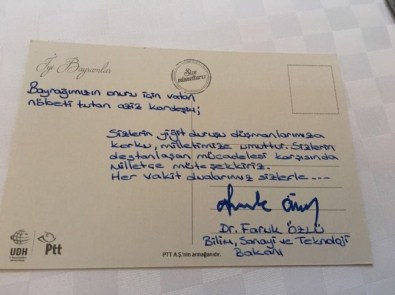 İyi Bayramlar
Size minnettarız
Bayrağımızın onuru için vatan
nöbeti tutan aziz kardeşim;
Sizlerin yiğit duruşu düşmanlarımıza
korku, milletimize umuttur. Sizlerin
destanlaşan mücadelesi karşısında
Milletçe müteşekkiriz.
Her vakit dualarımız sizlerle...
Dr. Faruk ÖZLÜ
Bilim, Sanayi ve Teknoloji
Bakanı
UDH
Ptt
PTT A.Ş.'nin armağanıdır.